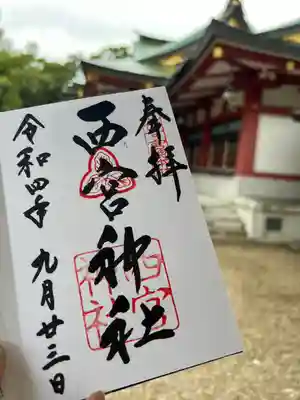 奉拝
西宮神社
令和四年
九月廿三日
西宮
神社